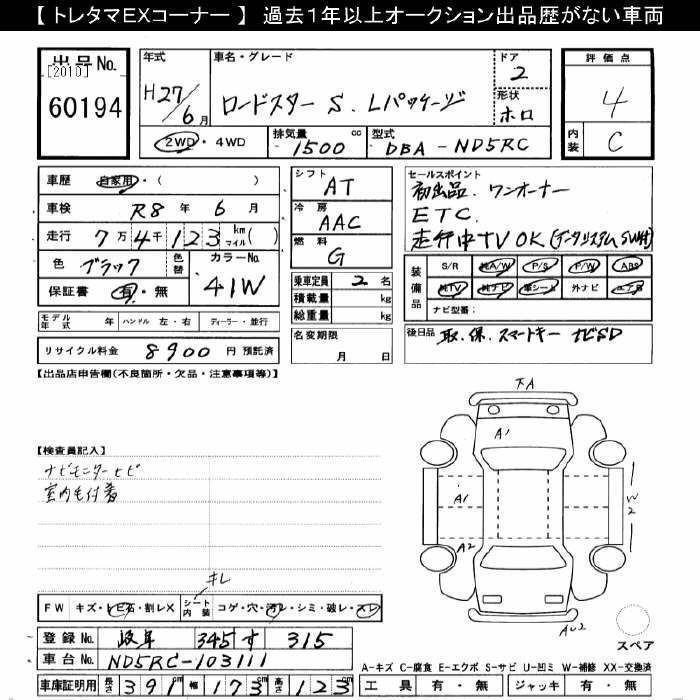 【 トレタマEXコーナー 】 過去1年以上オークション出品歴がない車両
出品No.
[2010]
60194
年式
H27/6月
車名・グレード
ロードスター S. Lパッケージ
ドア
2
形状
ホロ
評価点
4
内装
C
2WD・4WD
排気量
1500 cc
型式
DBA - ND5RC
車歴 自家用・( )
車検 R8 年 6 月
走行 7万4千123 km マイル( )
色 ブラック 色替
カラーNo. 41W
保証書 有・無
シフト
AT
冷房
AAC
燃料
G
乗車定員 2 名
積載量 kg
総重量 kg
名変期限
月 日
セールスポイント
初出品. ワンオーナー
ETC.
走行中TV OK (データシステムSW付)
装備品
S/R 純A/W P/S P/W ABS
純TV 純ナビ 革シート 外ナビ エアB
ナビ型番:
後日品 取.保.スマートキー ナビSD
モデル年式 年 ハンドル 左・右 ディーラー・並行
リサイクル料金 8900 円 預託済
【出品店申告欄(不良箇所・欠品・注意事項等)】
【検査員記入】
ナビモニターヒビ
室内毛付着
キレ
下A
A1
A1
A2
W2
AU2
スペア
FW キズ・トビ石・割レX シート内装 コゲ・穴・汚レ・シミ・破レ・スレ
登録No. 岐阜 345 す 315
車台No. ND5RC-103111
車庫証明用 長さ 391cm 幅 173cm 高さ 123cm
A-キズ C-腐食 E-エクボ S-サビ U-凹ミ W-補修 XX-交換済
工具 有・無 ジャッキ 有・無